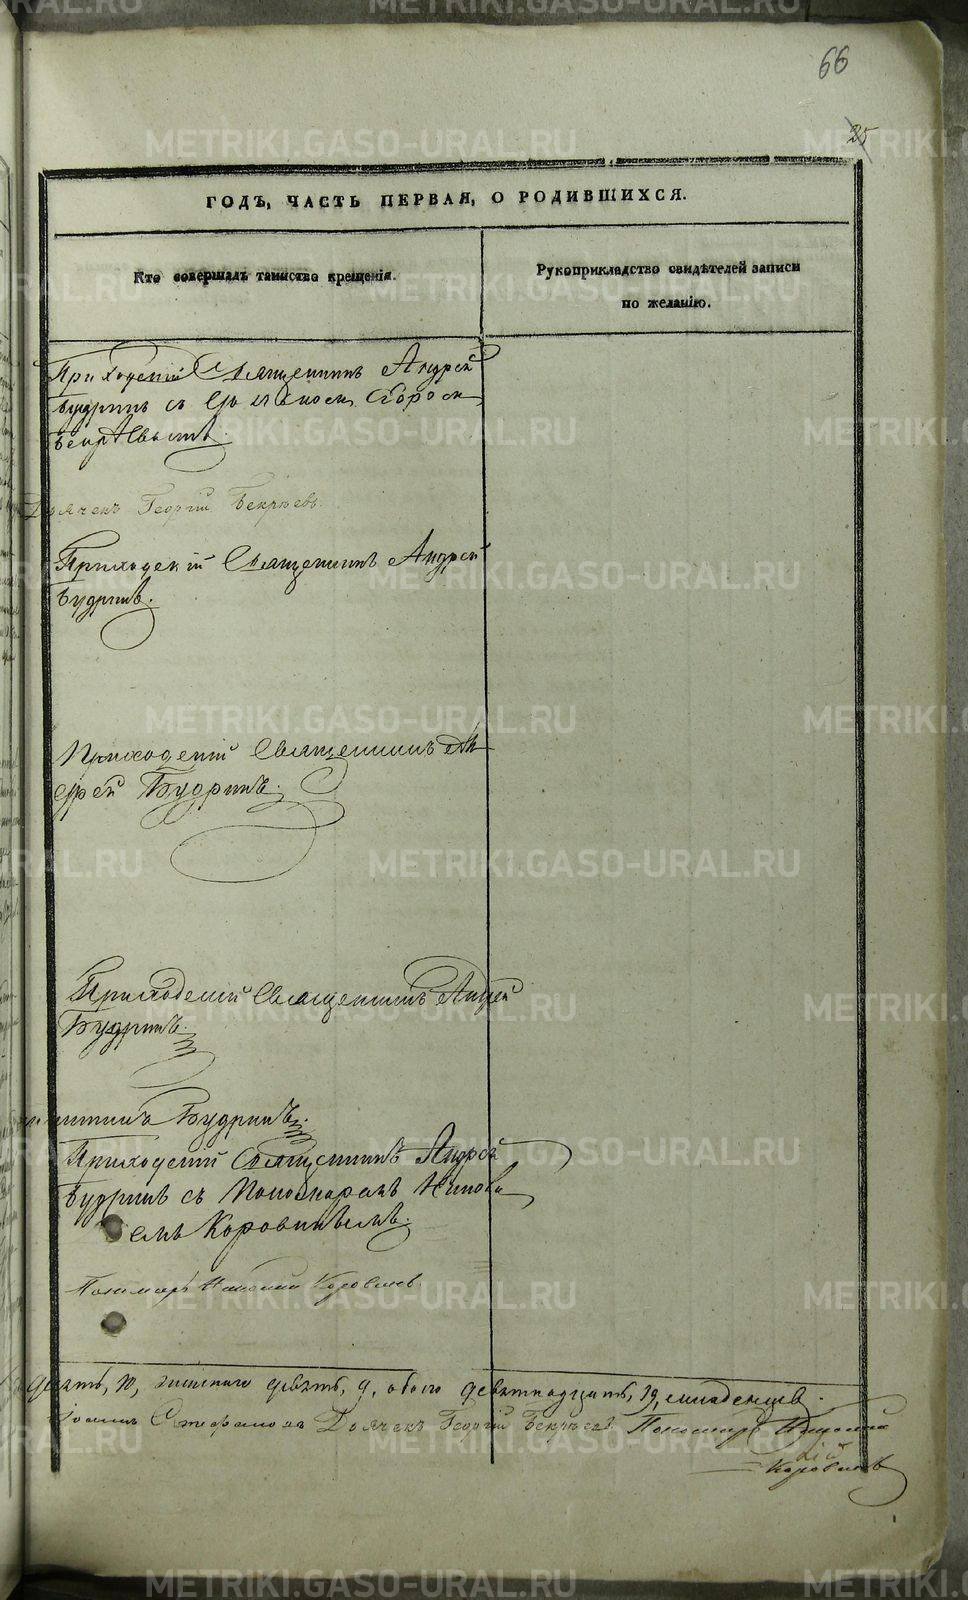 66
25
ГОДЪ, ЧАСТЬ ПЕРВАЯ, О РОДИВШИХСЯ.
Кто совершалъ таинство крещенія.
Рукоприкладство свидѣтелей записи
по желанію.
Приходскій Священникъ Андрей
Будринъ съ
Дьячекъ Георгій Бекрѣевъ.
Приходскій Священникъ Андрей
Будринъ.
Приходскій Священникъ Ан
дрей Будринъ.
Приходскій Священникъ Андрей
Будринъ.
Будринъ.
Приходскій Священникъ Андрей
Будринъ съ Пономаремъ
емъ Коровинымъ.
Пономарь
десять, 10, женскаго девять, 9, обоего девятнадцать, 19, младенцевъ.
Іоаннъ Стефановъ Дьячекъ Георгій Бекрѣевъ Пономарь
METRIKI.GASO-URAL.RU